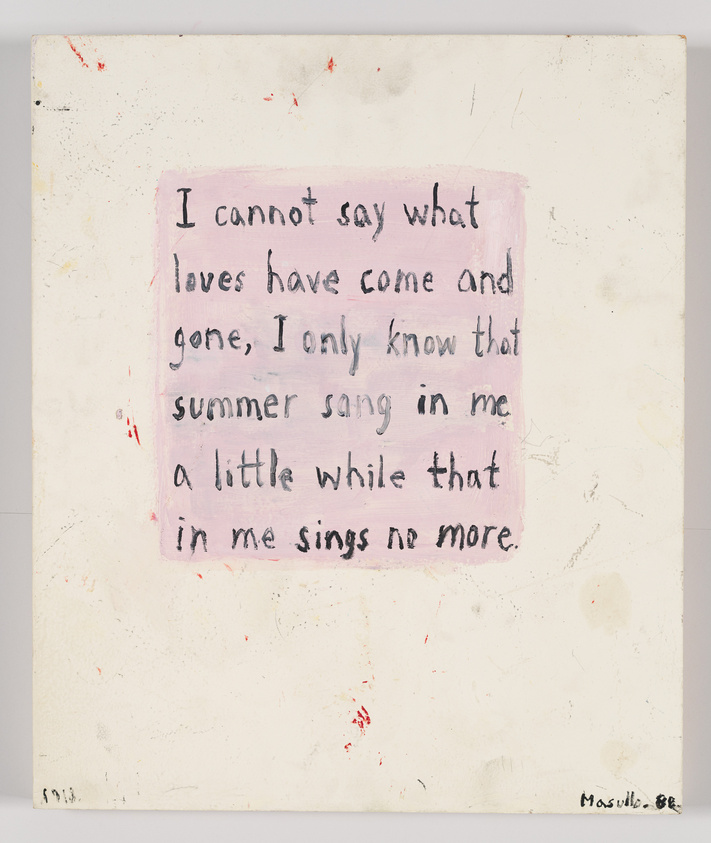 I cannot say what
loves have come and
gone, I only know that
summer sang in me
a little while that
in me sings no more.
Masullo. 88.